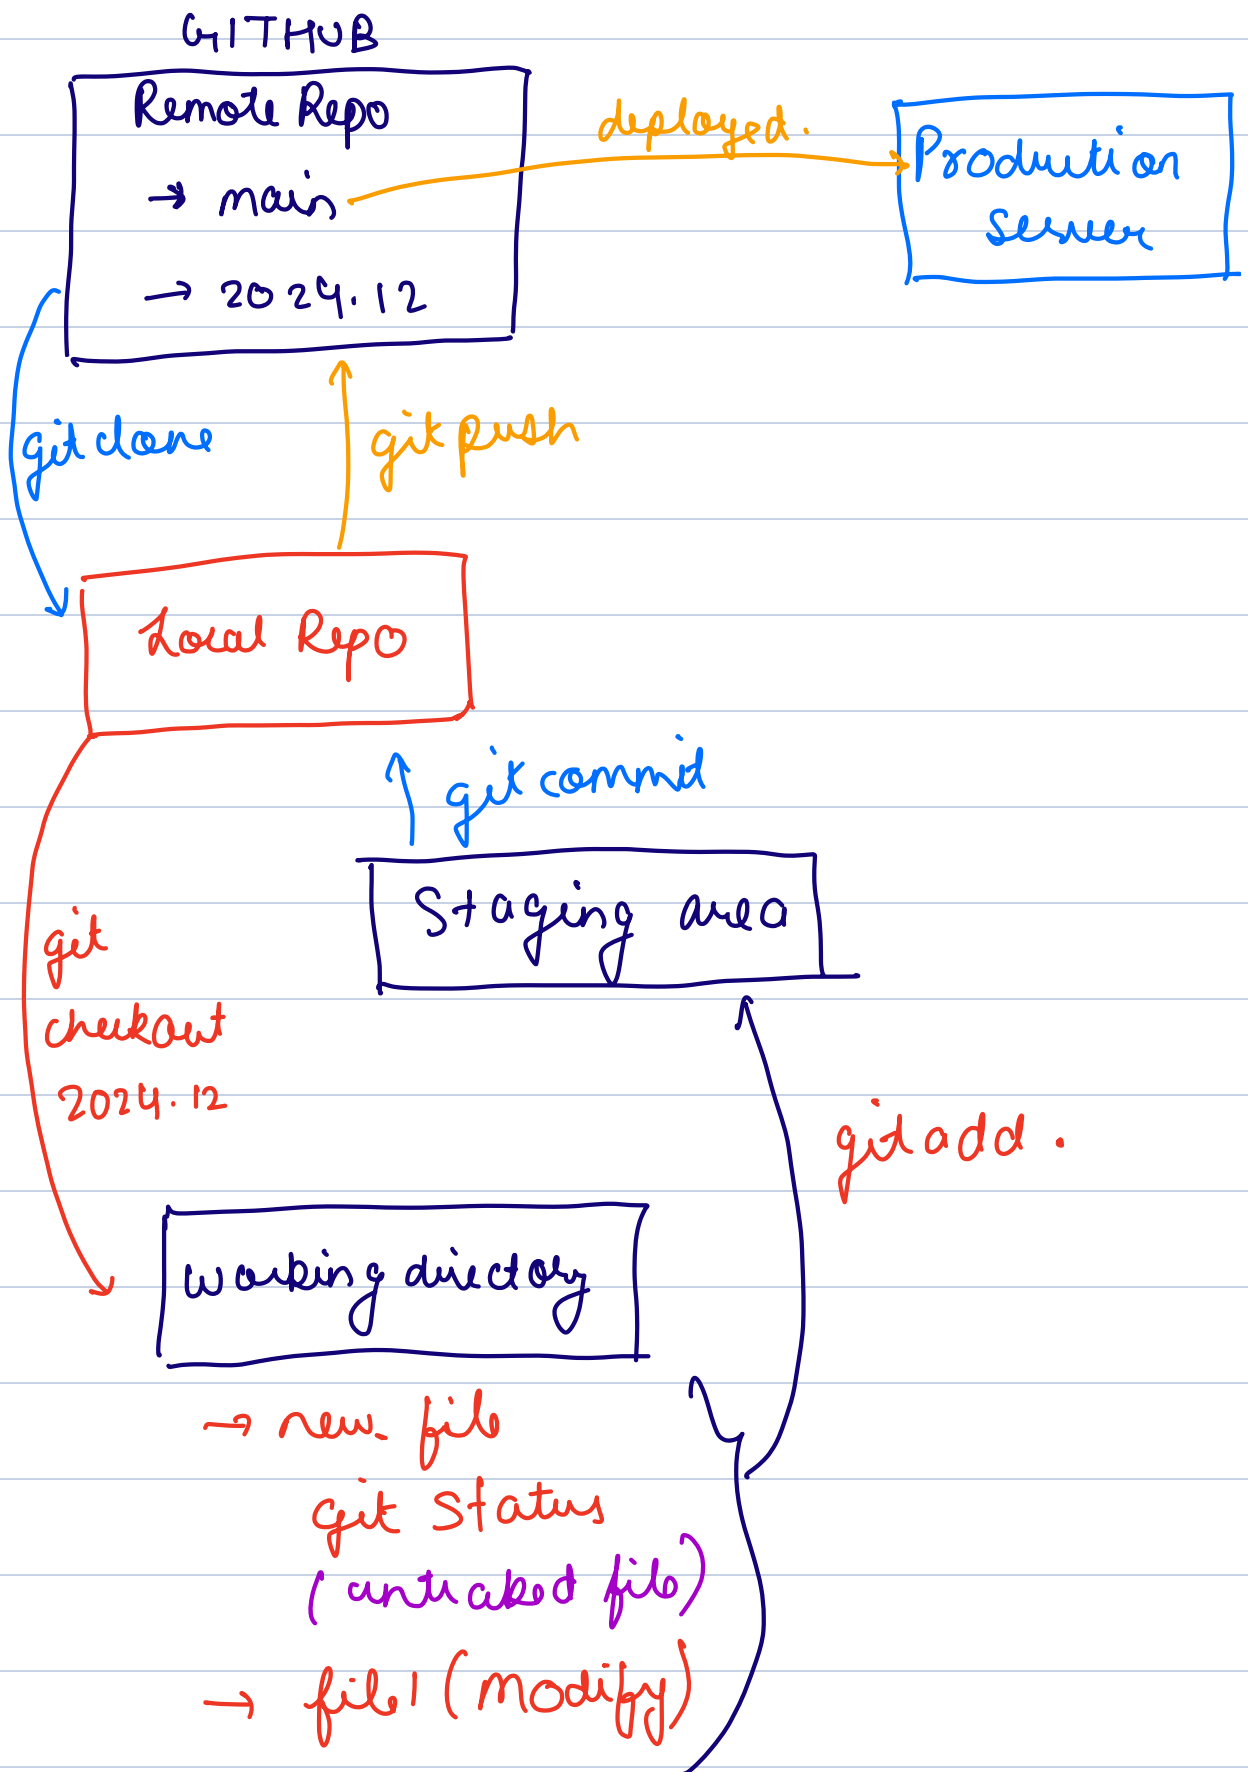 GITHUB
Remote Repo
→ main
→ 2024.12
deployed.
Production
server
git clone
git push
Local Repo
git commit
Staging area
git
checkout
2024.12
git add .
working directory
→ new file
git status
(untracked file)
→ file1 (modify)